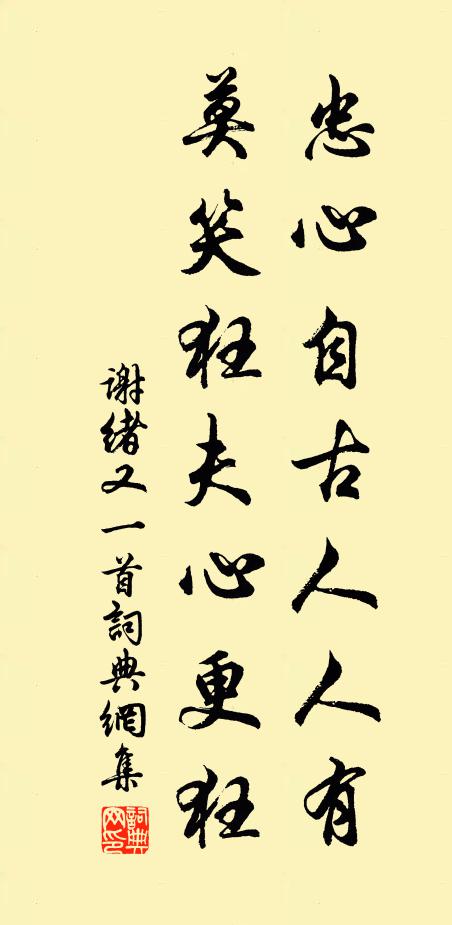 忠心自古人人有
莫笑狂夫心更狂
谢绪又一首詞典網集
詞典
网印